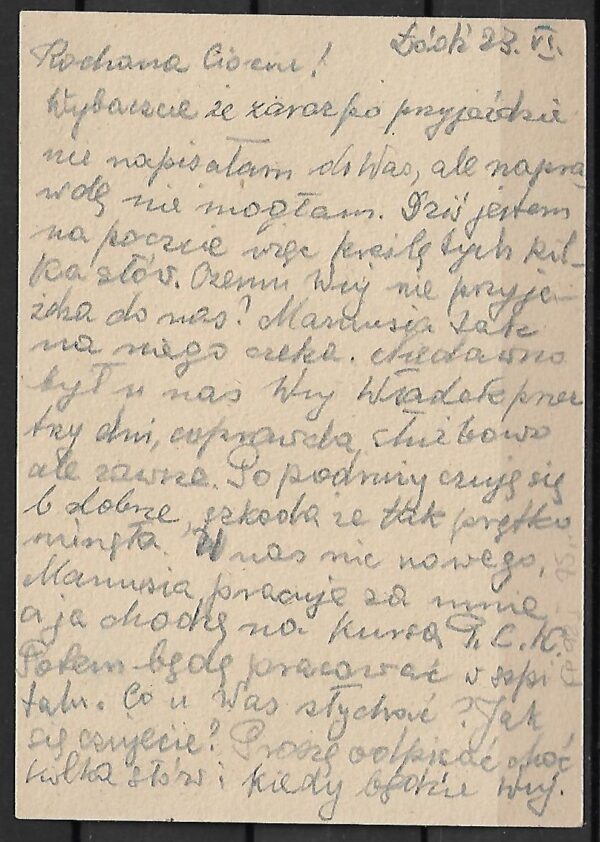 Łódź 23. VI.
Kochana Ciociu!
Wybaczcie że zaraz po przyjeździe
nie napisałam do Was, ale napra
wdę nie mogłam. Dziś jestem
na poczcie więc kreślę tych kil-
ka słów. Czemu Wuj nie przyje-
żdża do nas? Mamusia tak
na niego czeka. Niedawno
był u nas Wuj Władek przez
trzy dni, coprawda, służbowo
ale zawsze. Po podróży czuję się
b dobrze, szkoda że tak prętko
minęła. U nas nic nowego,
Mamusia, pracuje za mnie
a ja chodzę na kursa P.C.K.
Potem będę pracować w szpi
talu. Co u Was słychać? Jak
się czujecie? Proszę odpisać choć
kilka słów i kiedy będzie Wuj.